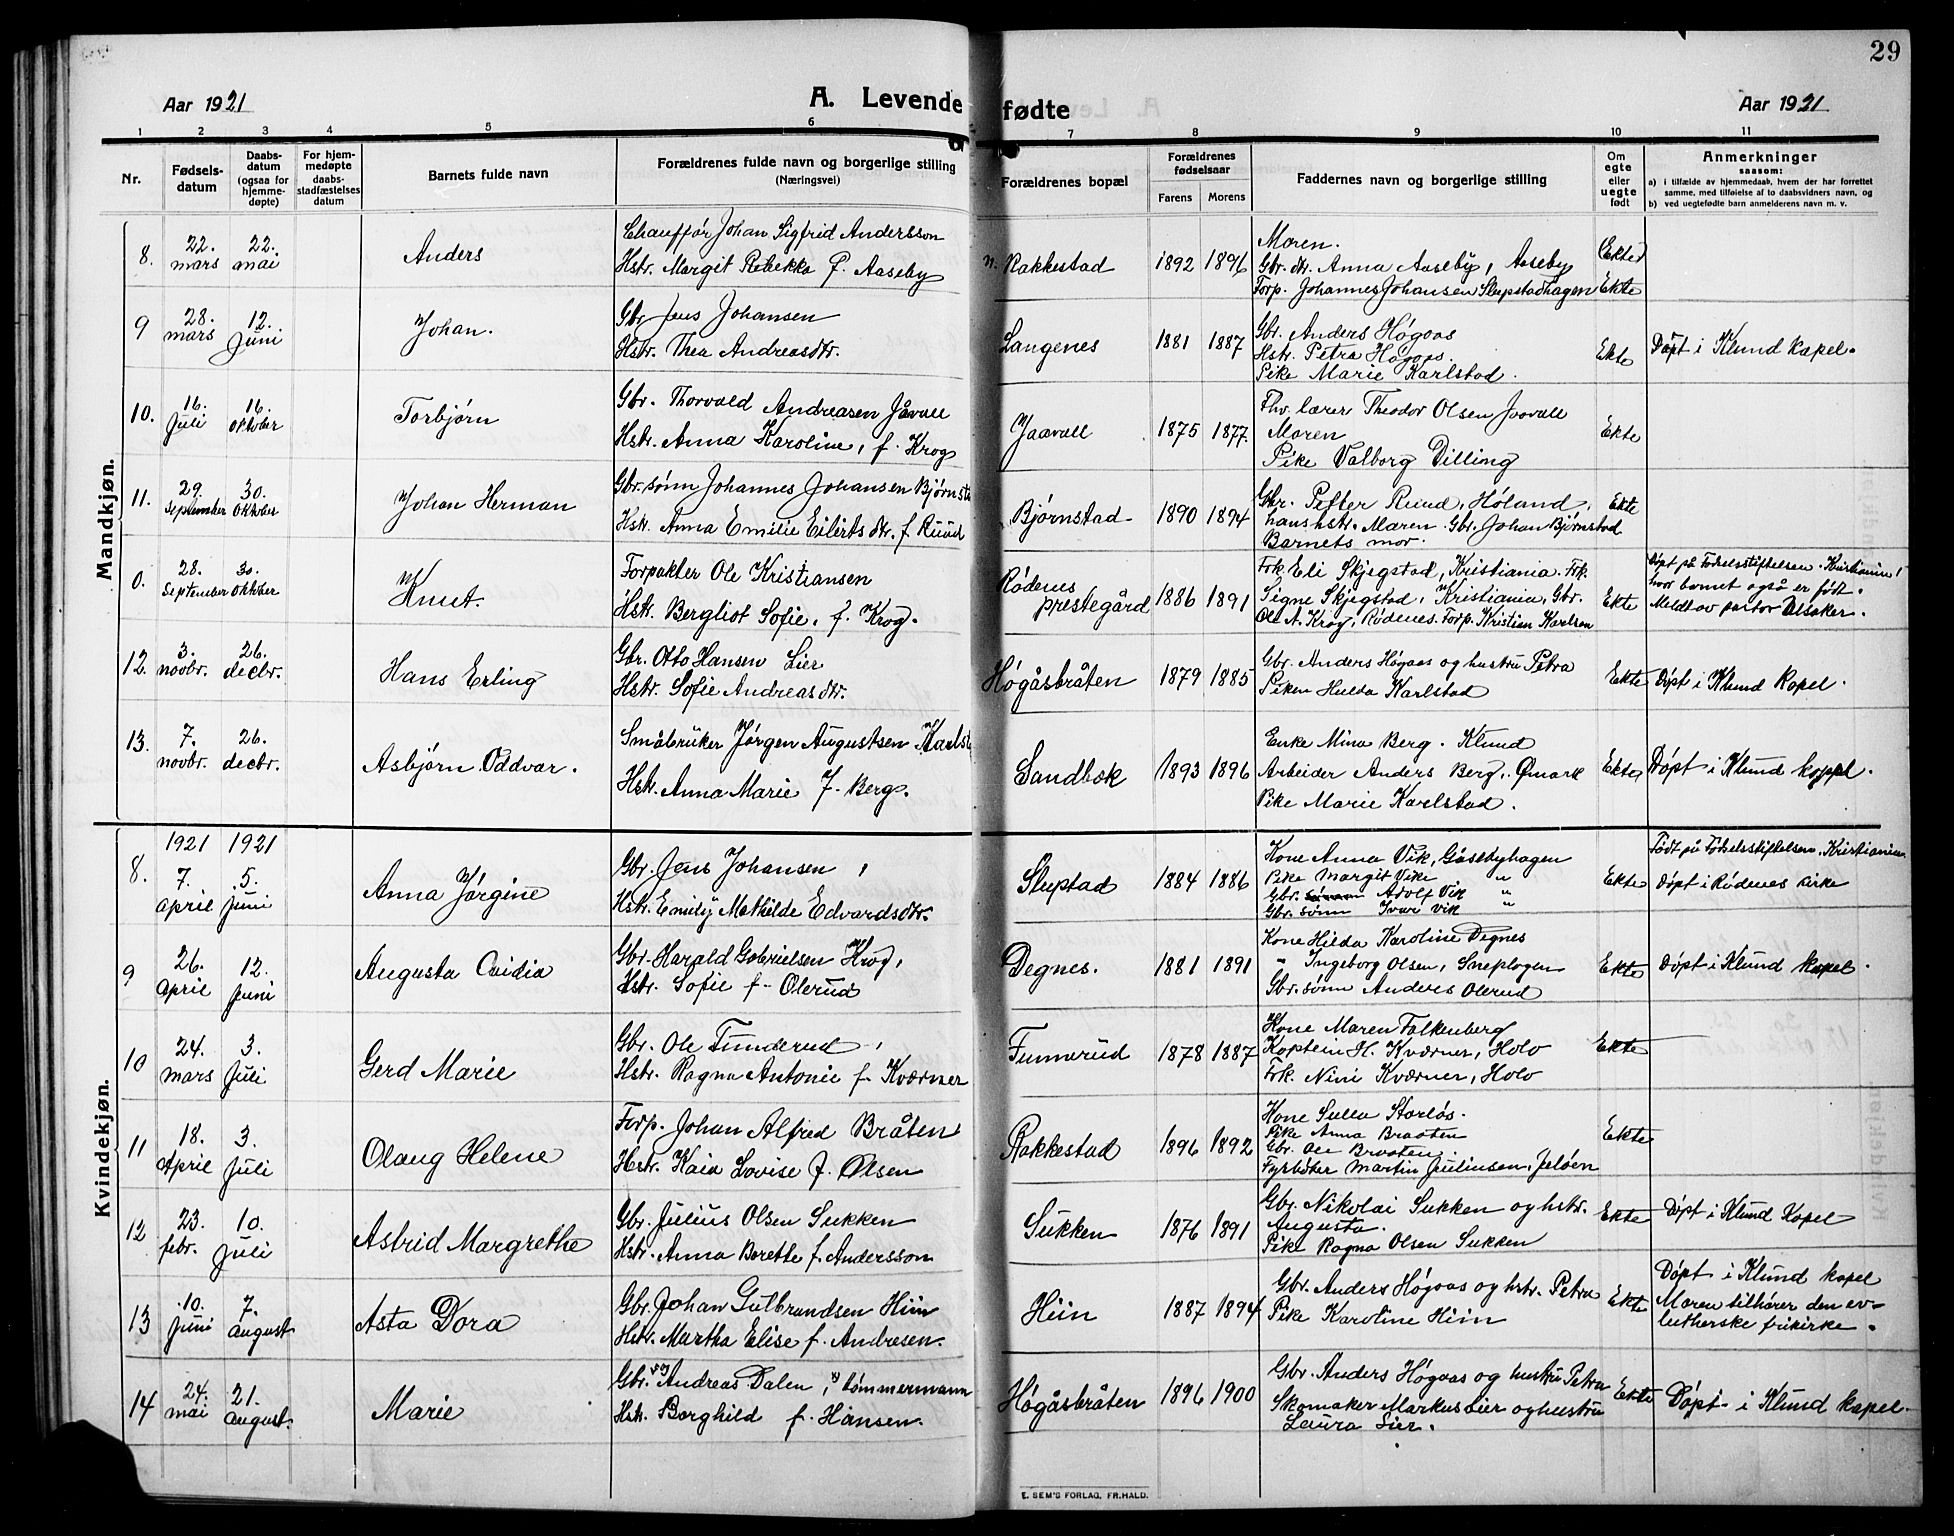 29
Aar 1921
A. Levende
fødte
Aar 1921
1 2 3 4 5 6 7 8 9 10 11
Nr.
Fødsels-
datum
Daabs-
datum
(ogsaa for
hjemme-
døpte)
For hjem-
medøpte
daabs-
stadfæstelses
datum
Barnets fulde navn
Forældrenes fulde navn og borgerlige stilling
(Næringsvei)
Forældrenes bopæl
Forældrenes
fødselsaar
Farens Morens
Faddernes navn og borgerlige stilling
Om
egte
eller
uegte
født
Anmerkninger
saasom:
a) i tilfælde av hjemmedaab, hvem der har forrettet
samme, med tilføielse af to daabsvidners navn, og
b) ved uegtefødte barn anmelderens navn m. v.
Mandkjøn.
8.
22.
mars
22.
mai
Anders
Chauffør Johan Sigfrid Andersson
Hstr. Margit Rebekka f. Aaseby
n. Rakkestad
1892 1896
Moren.
Gbr. dtr. Anna Aaseby, Aaseby
Forp. Johannes Johansen Slupstadhagen
Ekte
9
28.
mars
12.
Juni
Johan.
Gbr Jens Johansen
Hstr. Thea Andreasdtr.
Langenes
1881 1887
Gbr. Anders Høgaas
Hstr. Petra Høgaas.
Pike Marie Karlstad.
Ekte
Døpt i Klund Kapel.
10.
16.
Juli
16.
oktober
Torbjørn
Gbr. Thorvald Andreasen Jåvall
Hstr. Anna Karoline, f. Krog
Jaavall
1875 1877.
Fhv. lærer Theodor Olsen Jaavall
Moren
Pike Valborg Dilling
Ekte
11.
29.
September
30.
Oktober
Johan Herman
Gbr. sønn Johannes Johansen Bjørnst
Hstr. Anna Emilie Eilertsdtr. f. Ruud
Bjørnstad
1890 1894
Gbr. Petter Ruud, Høland,
hans hstr. Maren. Gbr. Johan Bjørnstad
Barnets mor.
Ekte
0.
28.
September
30.
oktober
Knut.
Forpakter Ole Kristiansen
Hstr. Bergliot Sofie, f. Krog.
Rødenes
prestegård
1886 1891
Frk. Eli Skjegstad, Kristiania. Frk.
Signe Skjegstad, Kristiania, Gbr.
Ole A. Krog, Rødenes. Forp. Kristian Karlsen
Ekte
Døpt på Fødselsstiftelsen. Kristiania,
hvor barnet også er født.
Meldt av pastor Alsaker.
12.
3.
novbr.
26.
decbr.
Hans Erling
Gbr. Otto Hansen Lier
Hstr. Sofie Andreasdtr.
Høgåsbråten
1879 1885
Gbr. Anders Høgaas og hustru Petra
Piken Hulda Karlstad
Ekte
Døpt i Klund Kapel.
13.
7.
novbr.
26.
decbr.
Asbjørn Oddvar.
Småbruker Jørgen Augustsen Karlst
Hstr. Anna Marie f. Berg.
Sandbæk
1893 1896
Enke Mina Berg. Klund
Arbeider Anders Berg, Ømark
Pike Marie Karlstad.
Ekte
Døpt i Klund kapel.
Kvindekjøn.
1921 1921
8.
7.
april
5.
Juni
Anna Jørgine
Gbr. Jens Johansen,
Hstr. Emily Mathilde Edvardsdtr.
Slupstad
1884 1886
Kone Anna Vik, Gåsebyhagen
Pike Margit Vik "
Gbr. Adolf Vik "
Gbr. sønn Ivar Vik "
Ekte
Født på Fødselsstiftelsen. Kristiania
Døpt i Rødenes kirke
9
26.
april
12.
Juni
Augusta Ovidia
Gbr. Harald Gabrielsen Krog,
Hstr. Sofie f. Olerud
Degnes.
1881 1891
Kone Hilda Karoline Degnes
" Ingeborg Olsen, Sneplogen
Gbr. sønn Anders Olerud
Ekte
Døpt i Klund kapel.
10
24.
mars
3.
Juli
Gerd Marie
Gbr. Ole Funderud,
Hstr. Ragna Antonie f. Kværner
Funnerud
1878 1887
Kone Maren Falkenberg
Kaptein H. Kværner, Holo
Frk. Nini Kværner, Holo
Ekte
11
18.
April
3.
Juli
Olaug Helene
Forp. Johan Alfred Bråten
Hstr. Kaia Lovise f. Olsen
Rakkestad
1896 1892
Kone Sulla Storløs.
Pike Anna Braaten
Gbr. Ole Braaten.
Fyrbøter Martin Juliussen, Jeløen
Ekte
12
23.
febr.
10.
Juli
Astrid Margrethe
Gbr. Julius Olsen Sukken
Hstr. Anna Borette f. Andersson
Sukken
1876 1891
Gbr. Nikolai Sukken og hstr.
Augusta.
Pike Ragna Olsen Sukken
Ekte
Døpt i Klund Kapel
13
10.
Juni
7.
august
Asta Dora
Gbr. Johan Gulbrandsen Hiin
Hstr. Martha Elise f. Andresen.
Hiin
1887 1894
Gbr. Anders Høgaas og hstr. Petra
Pike Karoline Hiin
Ekte
Døpt i Klund kapel
Moren tilhører den ev-
lutherske frikirke.
14
24.
mai
21.
august.
Marie
Gbr. og Andreas Dalen, tømmermann
Hstr. Borghild f. Hansen.
Høgåsbråten
1896 1900
Gbr. Anders Høgaas og hustru Petra
Skomaker Markus Lier og hustru
Laura Lier.
Ekte
Døpt i Klund kapel.
E. SEM'S FORLAG, FR.HALD.